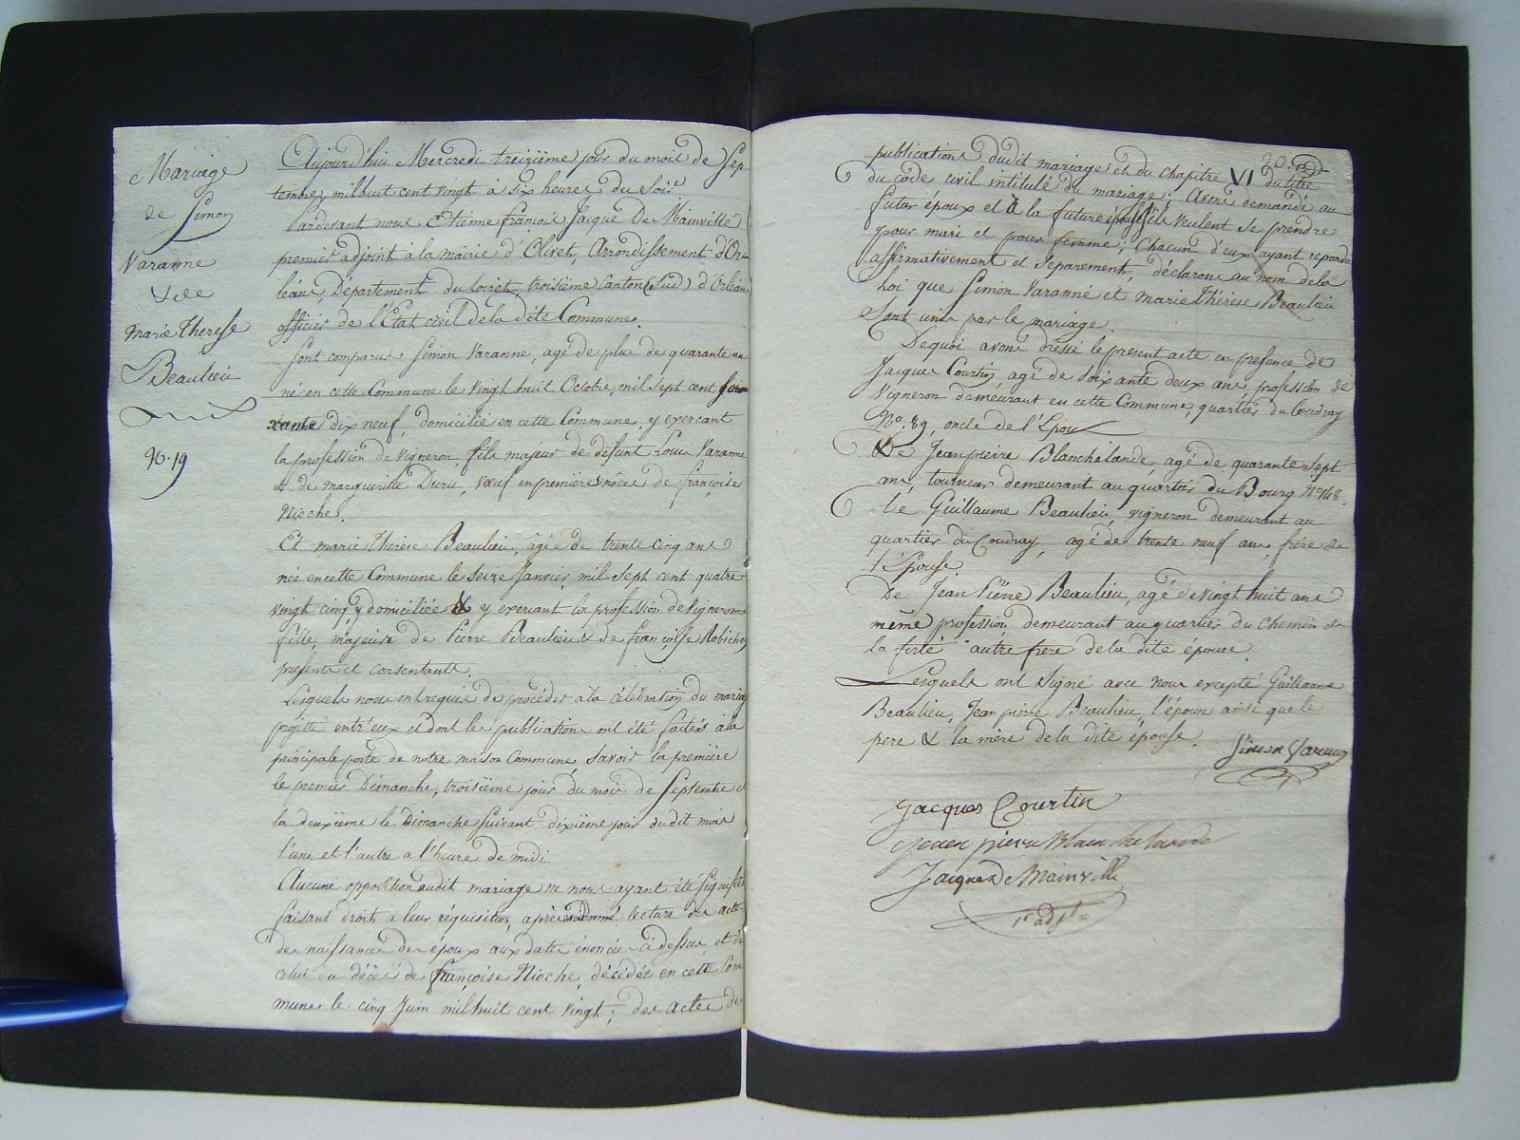 Mariage
de Simon
Varanne
&
Marie Theresse
Beaulieu
N°. 19
Aujourd'hui Mercredi treizième jour du mois de Sep
tembre, mil huit cent vingt à six heures du Soir
Pardevant nous Etienne françois Jacque De Mainville
premier adjoint à la mairie d'Olivet, Arrondissement d'Or
léans, Département du Loiret, troisième Canton (Sud) d'Orléans
officier de l'Etat civil De la dite Commune.
Sont comparus Simon Varanne, agé de plus de quarante ans
né en cette Commune le vingt huit Octobre, mil sept cent soi
xante dix neuf, domicilié en cette Commune, y exercant
la profession de vigneron, fils majeur de défunt Louis Varanne
& de marguerite Duru, veuf en première nôces de françoise
Nioche,
Et marie Thérèse Beaulieu, âgée de trente cinq ans
née en cette Commune le seize Janvier, mil sept cent quatre
vingt cinq y domiciliée & y exercant la profession de vigneronne
fille, majeure de Pierre Beaulieu & de françoise Robichon
présents et consentants.
Lesquels nous ont requis de procéder à la célébration du mariage
projetté entr'eux et dont les publications ont été faites à la
principale porte de notre maison Commune, Savoir la première
le premier Dimanche, troisième jour du mois de Septembre et
la deuxième le Dimanche Suivant dixième jour dudit mois
l'une et l'autre a l'heure de midi.
Aucune opposition audit mariage ne nous ayant été Signifiée
faisant droit à leur réquisition, après lecture des actes
de naissance des époux aux dates énoncées ci dessus, et de
celui du décès de françoise Nioche, décédée en cette Com
mune le cinq Juin mil huit cent vingt; des actes de
publications dudit mariage et du Chapitre VI du titre
du code civil intitulé du mariage; Avons demandé au
futur époux et à la future épouse s'ils veulent Se prendre
pour mari et pour femme; Chacun d'eux ayant repondu
affirmativement et Séparement, déclarons au nom de la
Loi que Simon Varanne et marie Thérèse Beaulieu
Sont unis par le mariage.
Dequoi avons dressé le present acte en presence de
Jacques Courtin, agé de soixante deux ans, profession de
Vigneron demeurant en cette Commune, quartier du Coudray
N°. 89, oncle de l'Epoux
De Jean pierre Blanchelande, agé de quarante Sept
ans, tourneur demeurant au quartier du Bourg N° 148.
De Guillaume Beaulieu, vigneron demeurant au
quartier du Coudray, agé de trente neuf ans, frère de
l'épouse
De Jean Pierre Beaulieu, agé de vingt huit ans
même profession, demeurant au quartier du Chemin de
la ferté autre frere de la dite épouse.
Lesquels ont Signé avec nous excepté Guillaume
Beaulieu, Jean pierre Beaulieu, l'épouse ainsi que le
pere & la mère de la dite épouse.
Simon Varanne
Jacques Courtin
jean pierre Blanchelande
Jacque De Mainville
1er adjt